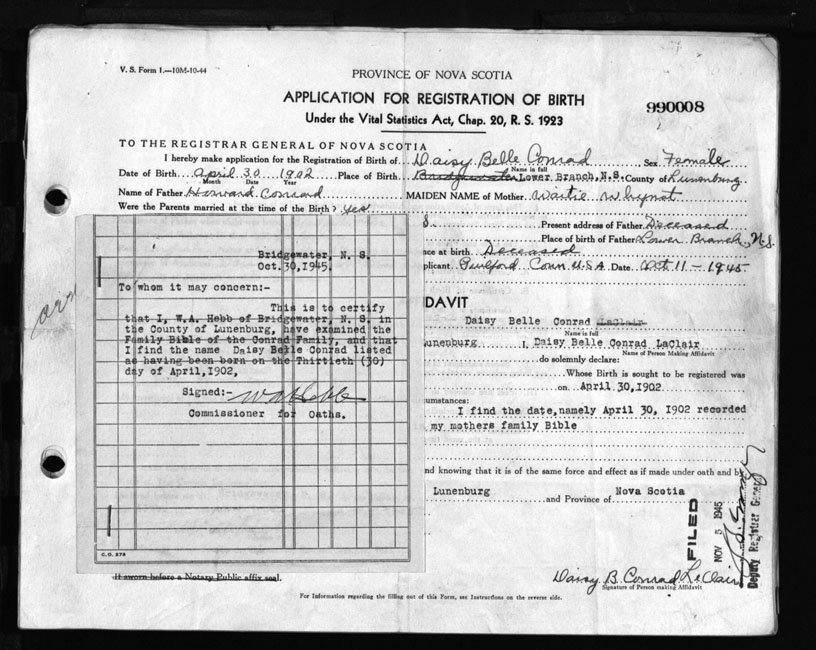 V. S. Form 1.—10M-10-44
PROVINCE OF NOVA SCOTIA
APPLICATION FOR REGISTRATION OF BIRTH
990008
Under the Vital Statistics Act, Chap. 20, R. S. 1923
TO THE REGISTRAR GENERAL OF NOVA SCOTIA
I hereby make application for the Registration of Birth of Daisy Belle Conrad Sex Female
Name in full
Date of Birth April 30 1902 Place of Birth Bridgewater Lower Branch, N.S. County of Lunenburg
Month Date Year
Name of Father Howard Conrad MAIDEN NAME of Mother
Were the Parents married at the time of the Birth? yes
S. Present address of Father Deceased
Place of birth of Father Lower Branch, N.S.
nce at birth Deceased
plicant. Guilford Conn U.S.A. Date Oct 11-1945
Bridgewater, N. S.
Oct.30,1945.
To whom it may concern:-
This is to certify
that I, W.A. Hebb of Bridgewater, N. S. in
the County of Lunenburg, have examined the
Family Bible of the Conrad Family, and that
I find the name Daisy Belle Conrad listed
as having been born on the Thirtieth (30)
day of April,1902,
Signed:- W A Hebb
Commissioner for Oaths.
C.O. 273
DAVIT
Daisy Belle Conrad LaClair
Name in full
unenburg I, Daisy Belle Conrad LaClair
Name of Person Making Affidavit
do solemnly declare:
Whose Birth is sought to be registered was
on April 30,1902
cumstances:
I find the date,namely April 30, 1902 recorded
my mothers family Bible
nd knowing that it is of the same force and effect as if made under oath and by
Lunenburg and Province of Nova Scotia
FILED
NOV 5 1945
Deputy Registrar General
If sworn before a Notary Public affix seal.
Daisy B. Conrad LeClair
Signature of Person making Affidavit
For Information regarding the filling out of this Form, see Instructions on the reverse side.